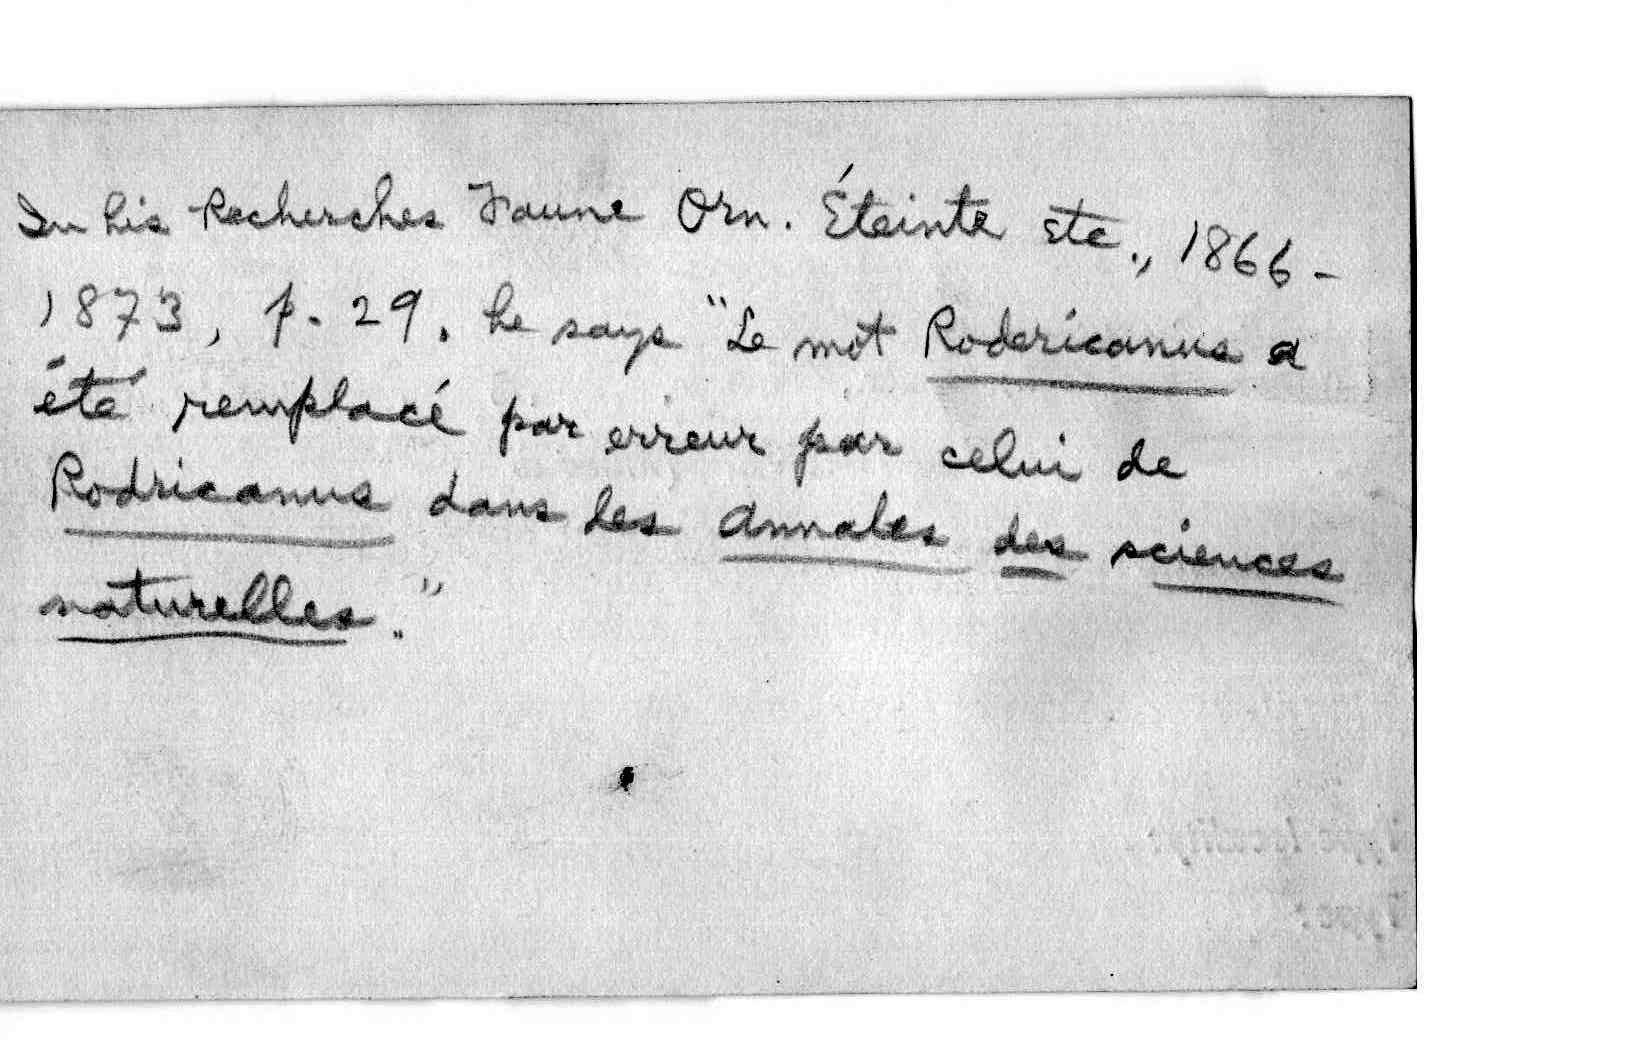 In his Recherches Faune Orn. Éteinte etc., 1866-
1873, p. 29. he says "Le mot Rodericanus a
été remplacé par erreur par celui de
Rodricanus dans les Annales des sciences
naturelles."
Type locality:
Type: